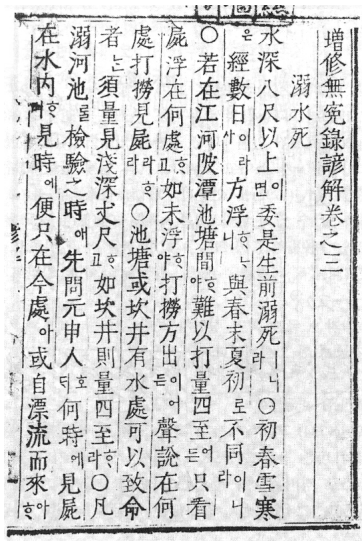 增修無寃錄諺解卷之三
溺水死
水深八尺以上이면委是生前溺死ㅣ니라○初春雪寒
은經數日이라사方浮ᄒᆞᄂᆞ니與春末夏初로不同이니라
○若在江河陂潭池塘間ᄒᆞ야難以打量四至어든只看
屍浮在何處ᄒᆞ고如未浮ᄒᆞ야打撈方出이어든聲說在何
處打撈見屍ㅣ라ᄒᆞ라○池塘或坎井有水處可以致命
者ᄂᆞᆫ須量見淺深丈尺ᄒᆞ고如坎井則量四至ᄒᆞ라○凡
溺河池ᄅᆞᆯ檢驗之時애先問元申人호ᄃᆡ何時에見屍
在水內ᄒᆞ며見時에便只在今處아或自漂流而來아ᄒᆞ